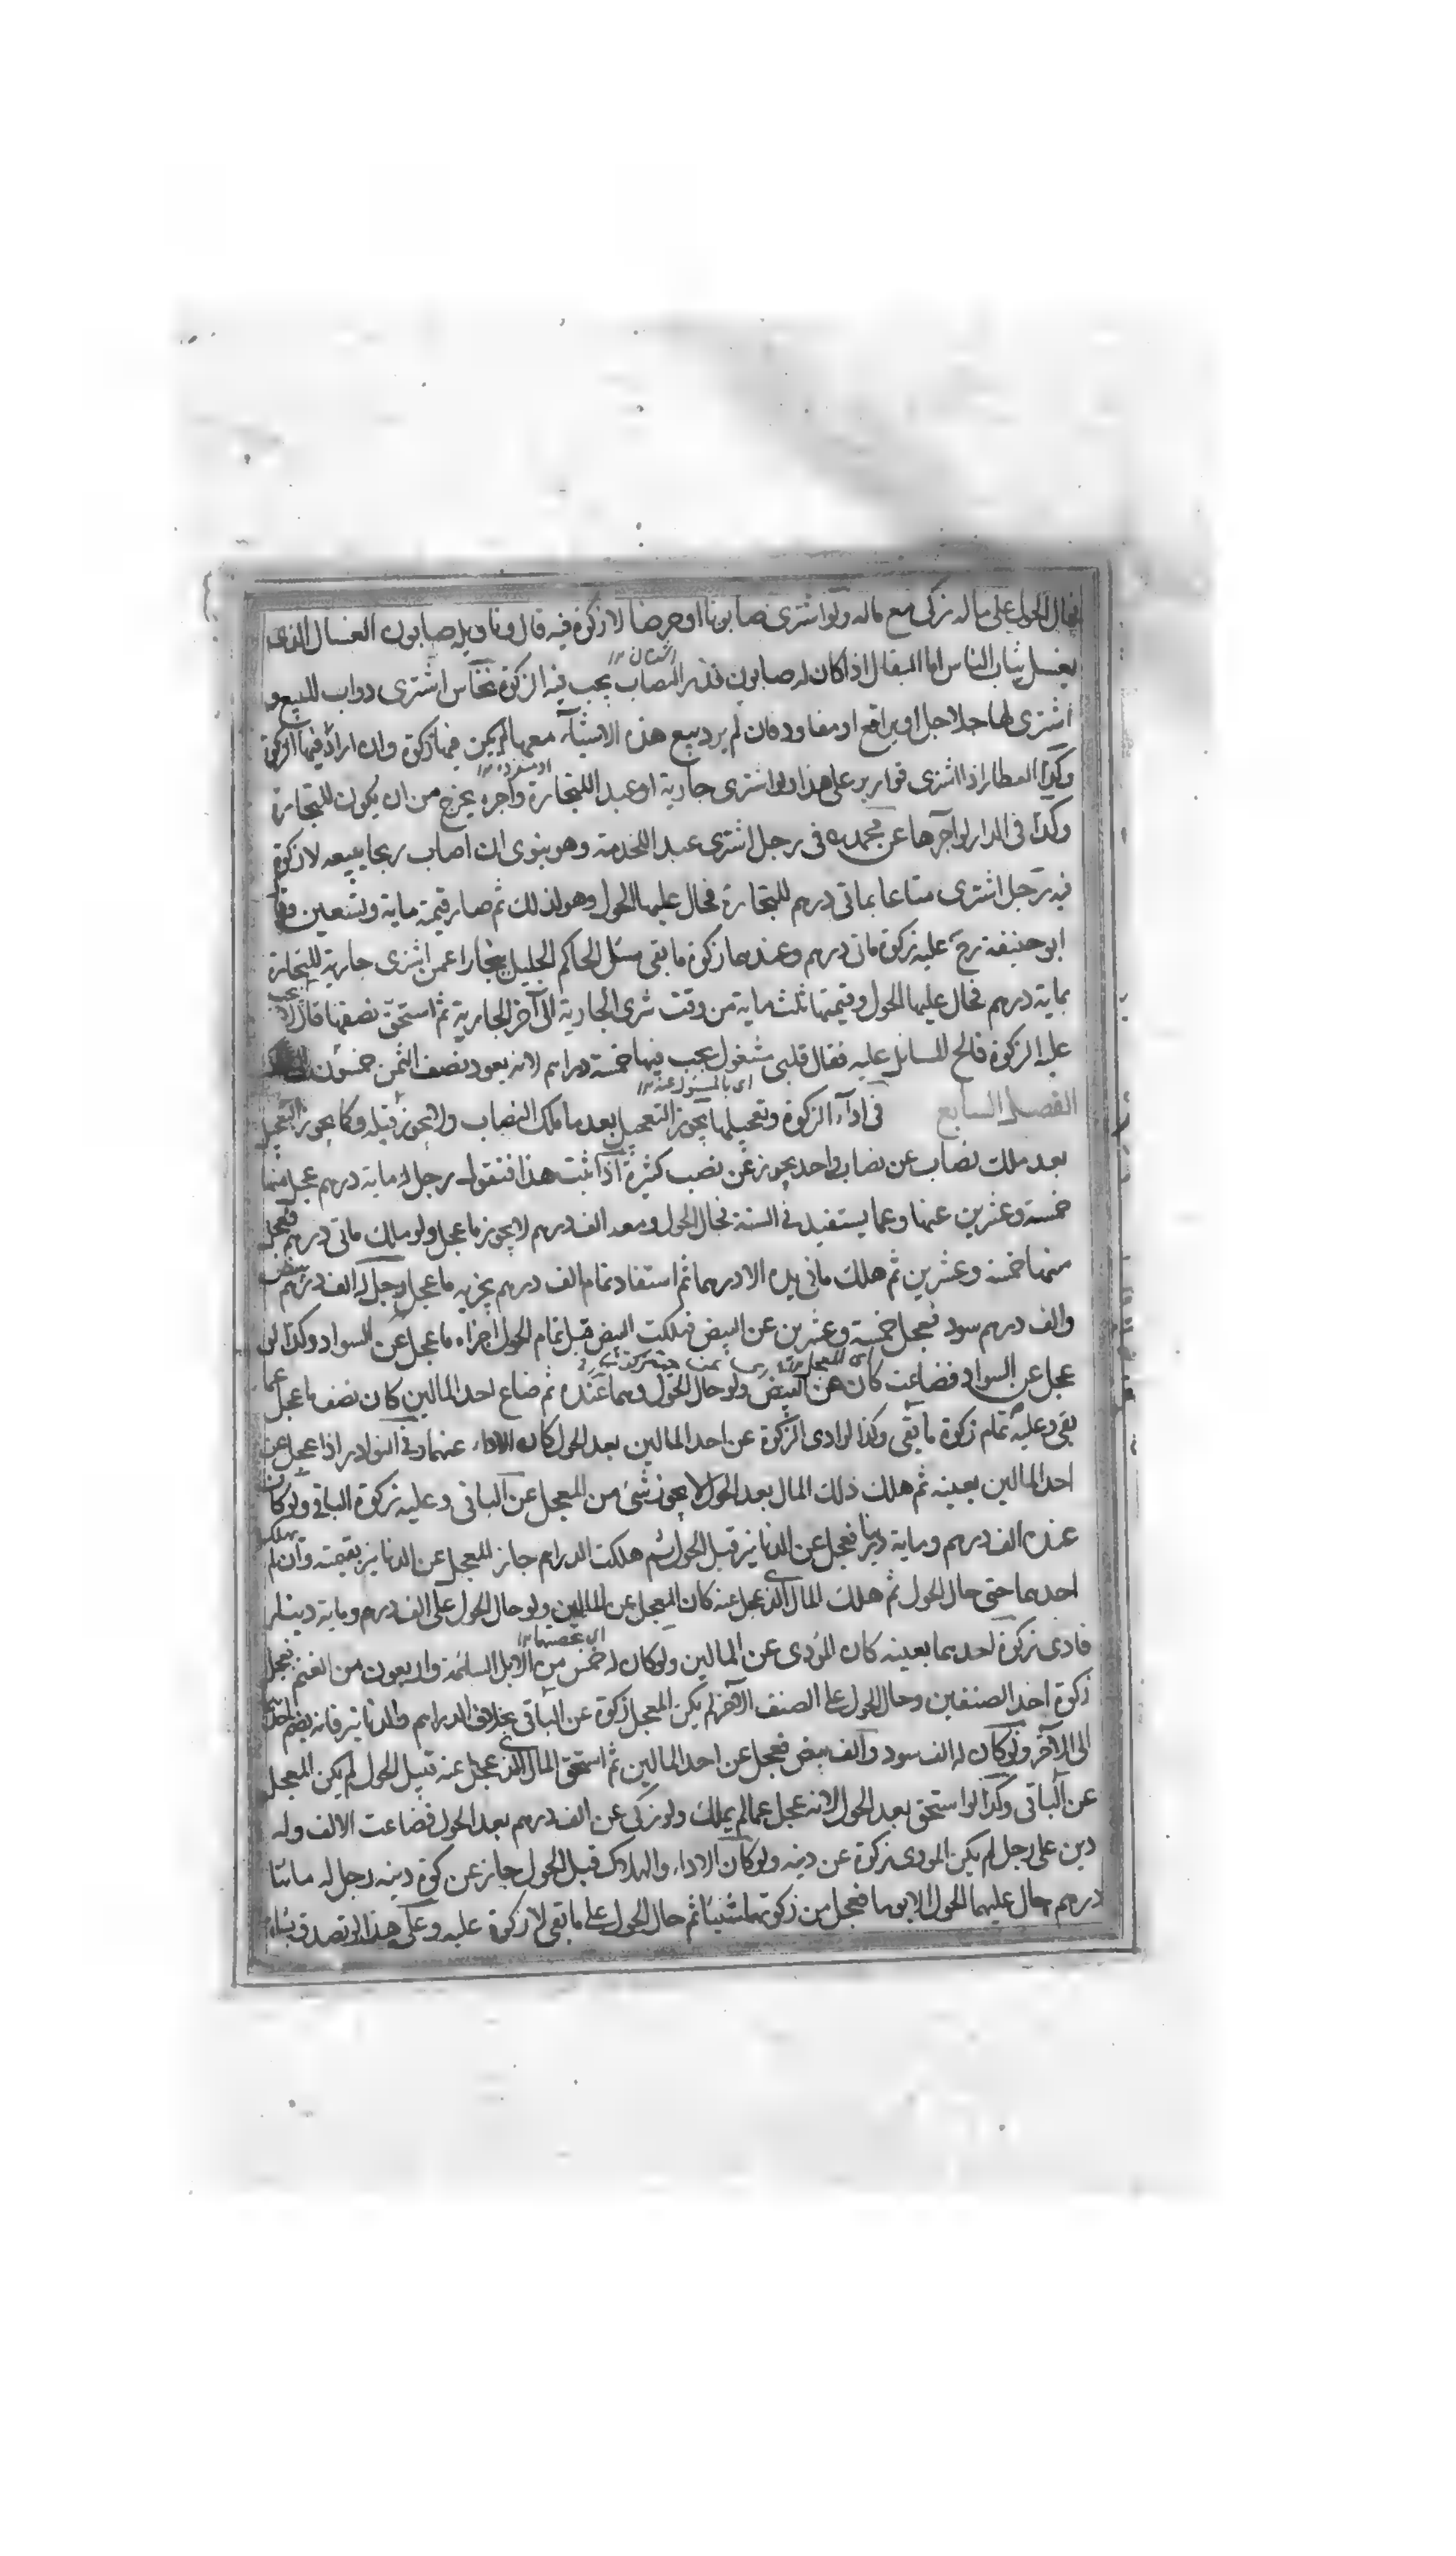 فحال الحول على ماله زكى مع ماله ولو اشترى صابونا او حرضا لا زكوة فيه قال وتاويله صابون الغسال الذى
يغسل ثياب الناس اما البقال اذا كان له صابون قدر النصاب يجب فيه الزكوة نخاس اشترى دواب للبيع و
اشترى لها جلاجل او براقع او مقاود فان لم يرد بيع هذه الاشياء معها لم يكن فيها زكوة وان اراد ففيها الزكوة
وكذا العطار اذا اشترى قوارير على هذا ولو اشترى جارية او عبدا للتجارة وآجره يخرج من ان يكون للتجارة
وكذا فى الدار لو آجرها عن محمد فى رجل اشترى عبدا للخدمة وهو ينوى ان اصاب ربحا يبيعه لا زكوة
فيه رجل اشترى متاعا بماتى درهم للتجارة فحال عليها الحول وهو لذلك ثم صار قيمته ماية وتسعين
ابو حنيفة رح عليه زكوة ماتى درهم وعندهما زكوة ما بقى سئل الحاكم الجليل ببخارا عمن اشترى جارية للتجارة
بماية درهم فحال عليها الحول وقيمتها ثلث ماية من وقت شرى الجارية الى آخر الجارية ثم استحق نصفها قال لا يجب
عليه الزكوة فالح السايل عليه فقال قلبى مشغول يجب فيها خمسة دراهم لانه يعود نصف الثمن خمسون
الفصل السابع فى اداء الزكوة وتعجيلها يجوز التعجيل بعد ما ملك النصاب ولا يجوز قبله وكما يجوز التعجيل
بعد ملك نصاب عن نصاب واحد يجوز عن نصب كثيرة اذا ثبت هذا فنقول رجل له ماية درهم عجل منها
خمسة وعشرين عنها وعما يستفيد فى السنة فحال الحول ومعه الف درهم لا يجوز ما عجل ولو ملك ماتى درهم فعجل
منها خمسة وعشرين ثم هلك ما فى يده الا درهما ثم استفاد تمام الف درهم يجزيه ما عجل رجل له الف درهم بيض
والف درهم سود فعجل خمسة وعشرين عن البيض فهلكت البيض قبل تمام الحول اجزاه ما عجل عن السواد وكذا لو
عجل عن السواد فضاعت كان عن البيض ولو حال الحول وهما عنده ثم ضاع احد المالين كان نصف ما عجل عما
بقى وعليه تمام زكوة ما بقى وكذا لو ادى الزكوة عن احد المالين بعد الحول كان الاداء عنهما وفى النوادر اذا عجل عن
احد المالين بعينه ثم هلك ذلك المال بعد الحول لا يجوز شئ من المعجل عن الباقى وعليه زكوة الباقى ولو كان
عنده الف درهم وماية دينار فعجل عن الدنانير قبل الحول ثم هلكت الدراهم جاز المعجل عن الدنانير بقيمته وان لم يهلك
احدهما حتى حال الحول ثم هلك المال الذى عجل عنه كان المعجل عن المالين ولو حال الحول على الف درهم وماية دينار
فادى زكوة احدهما بعينه كان المؤدى عن المالين ولو كان له خمس من الابل السائمة واربعون من الغنم فعجل
زكوة احد الصنفين وحال الحول على الصنف الآخر لم يكن المعجل زكوة عن الباقى بخلاف الدراهم والدنانير فانه يضم احدهما
الى الآخر ولو كان له الف سود والف بيض فعجل عن احد المالين ثم استحق المال الذى عجل عنه قبيل الحول لم يكن المعجل
عن الباقى وكذا لو استحق بعد الحول لانه عجل عما لم يملك ولو زكى عن الف درهم بعد الحول فضاعت الالف وله
دين على رجل لم يكن المودى زكوة عن دينه ولو كان الاداء والهلاك قبل الحول جاز عن زكوة دينه رجل له مائتا
درهم حال عليها الحول الا يوما فعجل من زكوتها شيئا ثم حال الحول على ما بقى لا زكوة عليه وعلى هذا لو تصدق بشاة